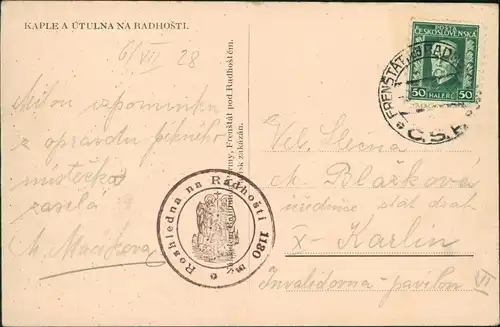 KAPLE A ÚTULNA NA RADHOŠTI.
6/VII 28
Milou vzpomínku
z opravdu pěkného
místečka
zasílá
M. Macíková
Frenštát pod Radhoštěm.
zakázán.
Rozhledna na Radhošti 1180 m
POŠTA
ČESKOSLOVENSKÁ
50 HALÉŘŮ 50
FRENŠTÁT POD RADH
Č.S.R.
Vel. Slečna
M. Blažková
úřednice stát. drah
X - Karlín
Invalidovna - pavilon VII